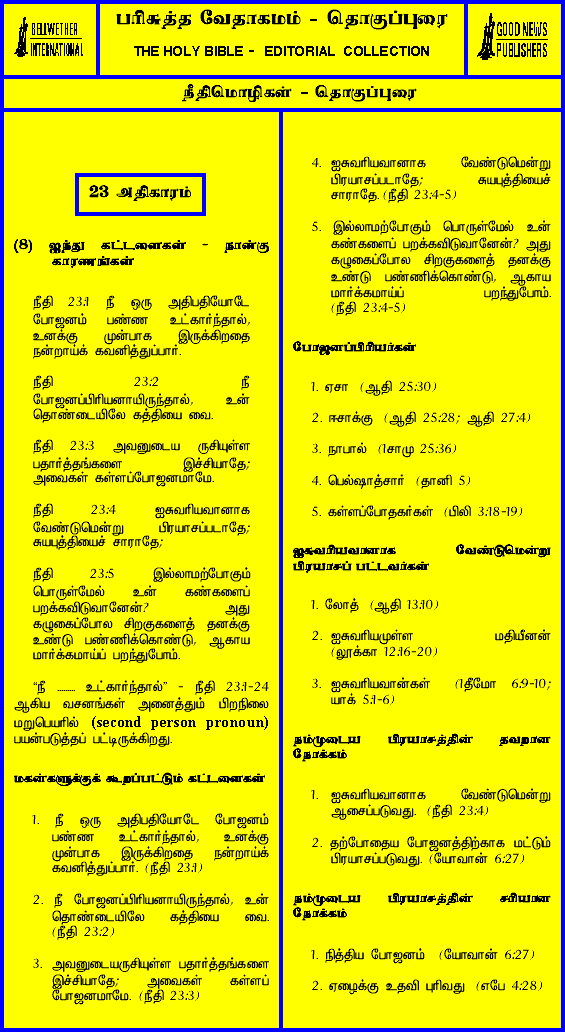 BELLWETHER
INTERNATIONAL
பரிசுத்த வேதாகமம் - தொகுப்புரை
THE HOLY BIBLE - EDITORIAL COLLECTION
GOOD NEWS
PUBLISHERS
நீதிமொழிகள் - தொகுப்புரை
23 அதிகாரம்
(8) ஐந்து கட்டளைகள் - நான்கு
காரணங்கள்
நீதி 23:1 நீ ஒரு அதிபதியோடே
போஜனம் பண்ண உட்கார்ந்தால்,
உனக்கு முன்பாக இருக்கிறதை
நன்றாய்க் கவனித்துப்பார்.
நீதி 23:2 நீ
போஜனப்பிரியனாயிருந்தால், உன்
தொண்டையிலே கத்தியை வை.
நீதி 23:3 அவனுடைய ருசியுள்ள
பதார்த்தங்களை இச்சியாதே;
அவைகள் கள்ளப்போஜனமாமே.
நீதி 23:4 ஐசுவரியவானாக
வேண்டுமென்று பிரயாசப்படாதே;
சுயபுத்தியைச் சாராதே;
நீதி 23:5 இல்லாமற்போகும்
பொருள்மேல் உன் கண்களைப்
பறக்கவிடுவானேன்? அது
கழுகைப்போல சிறகுகளைத் தனக்கு
உண்டு பண்ணிக்கொண்டு, ஆகாய
மார்க்கமாய்ப் பறந்துபோம்.
“நீ ......... உட்கார்ந்தால்” - நீதி 23:1-24
ஆகிய வசனங்கள் அனைத்தும் பிறநிலை
மறுபெயரில் (second person pronoun)
பயன்படுத்தப் பட்டிருக்கிறது.
மகன்களுக்குக் கூறப்பட்டும் கட்டளைகள்
1. நீ ஒரு அதிபதியோடே போஜனம்
பண்ண உட்கார்ந்தால், உனக்கு
முன்பாக இருக்கிறதை நன்றாய்க்
கவனித்துப்பார். (நீதி 23:1)
2. நீ போஜனப்பிரியனாயிருந்தால், உன்
தொண்டையிலே கத்தியை வை.
(நீதி 23:2)
3. அவனுடையருசியுள்ள பதார்த்தங்களை
இச்சியாதே; அவைகள் கள்ளப்
போஜனமாமே. (நீதி 23:3)
4. ஐசுவரியவானாக வேண்டுமென்று
பிரயாசப்படாதே; சுயபுத்தியைச்
சாராதே. (நீதி 23:4-5)
5. இல்லாமற்போகும் பொருள்மேல் உன்
கண்களைப் பறக்கவிடுவானேன்? அது
கழுகைப்போல சிறகுகளைத் தனக்கு
உண்டு பண்ணிக்கொண்டு, ஆகாய
மார்க்கமாய்ப் பறந்துபோம்.
(நீதி 23:4-5)
போஜனப்பிரியர்கள்
1. ஏசா (ஆதி 25:30)
2. ஈசாக்கு (ஆதி 25:28; ஆதி 27:4)
3. நாபால் (1சாமு 25:36)
4. பெல்ஷாத்சார் (தானி 5)
5. கள்ளப்போதகர்கள் (பிலி 3:18-19)
ஐசுவரியவானாக வேண்டுமென்று
பிரயாசப் பட்டவர்கள்
1. லோத் (ஆதி 13:10)
2. ஐசுவரியமுள்ள மதியீனன்
(லூக்கா 12:16-20)
3. ஐசுவரியவான்கள் (1தீமோ 6:9-10;
யாக் 5:1-6)
நம்முடைய பிரயாசத்தின் தவறான
நோக்கம்
1. ஐசுவரியவானாக வேண்டுமென்று
ஆசைப்படுவது. (நீதி 23:4)
2. தற்போதைய போஜனத்திற்காக மட்டும்
பிரயாசப்படுவது. (யோவான் 6:27)
நம்முடைய பிரயாசத்தின் சரியான
நோக்கம்
1. நித்திய போஜனம் (யோவான் 6:27)
2. ஏழைக்கு உதவி புரிவது (எபே 4:28)